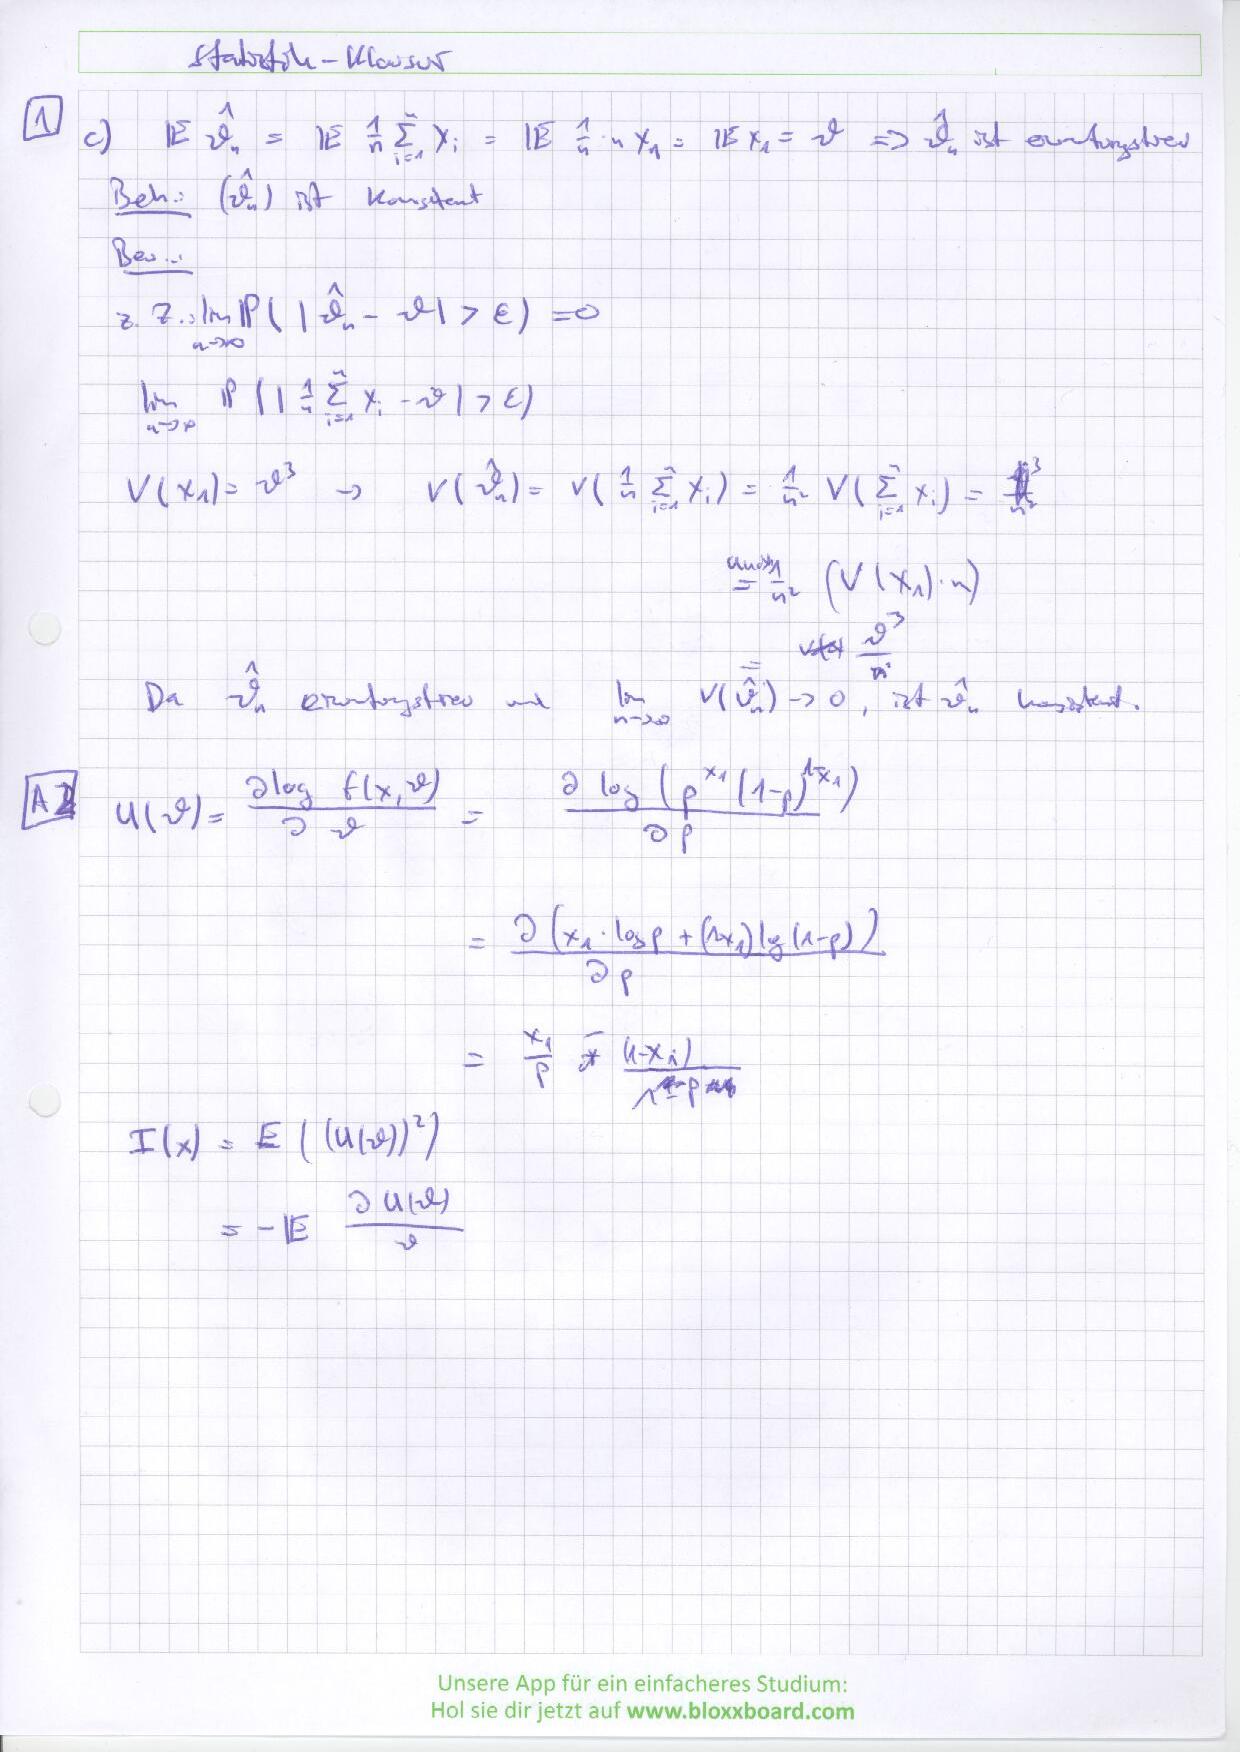 Statistik-Klausur
1 c) 𝔼 ϑ̂_n = 𝔼 1/n Σ_{i=1}^n X_i = 𝔼 1/n · n X_1 = 𝔼 X_1 = ϑ => ϑ̂_n ist erwartungstreu
Beh.: (ϑ̂_n) ist konsistent
Bew.:
z. Z.: lim_{n→∞} ℙ(|ϑ̂_n - ϑ| > ε) = 0
lim_{n→∞} ℙ(|1/n Σ_{i=1}^n X_i - ϑ| > ε)
V(X_1) = ϑ³ → V(ϑ̂_n) = V(1/n Σ_{i=1}^n X_i) = 1/n² V(Σ_{i=1}^n X_i) =
= 1/n² (V(X_1)·n)
= ϑ³/n
Da ϑ̂_n erwartungstreu und lim_{n→∞} V(ϑ̂_n) → 0, ist ϑ̂_n konsistent.
A2 U(ϑ) = ∂ log f(x,ϑ) / ∂ϑ = ∂ log (p^{x_1} (1-p)^{1-x_1}) / ∂p
= ∂(x_1 · log p + (1-x_1) log(1-p)) / ∂p
= x_1/p - (1-x_1)/(1-p)
I(x) = E((U(ϑ))²)
= -𝔼 ∂U(ϑ)/ϑ
Unsere App für ein einfacheres Studium:
Hol sie dir jetzt auf www.bloxxboard.com